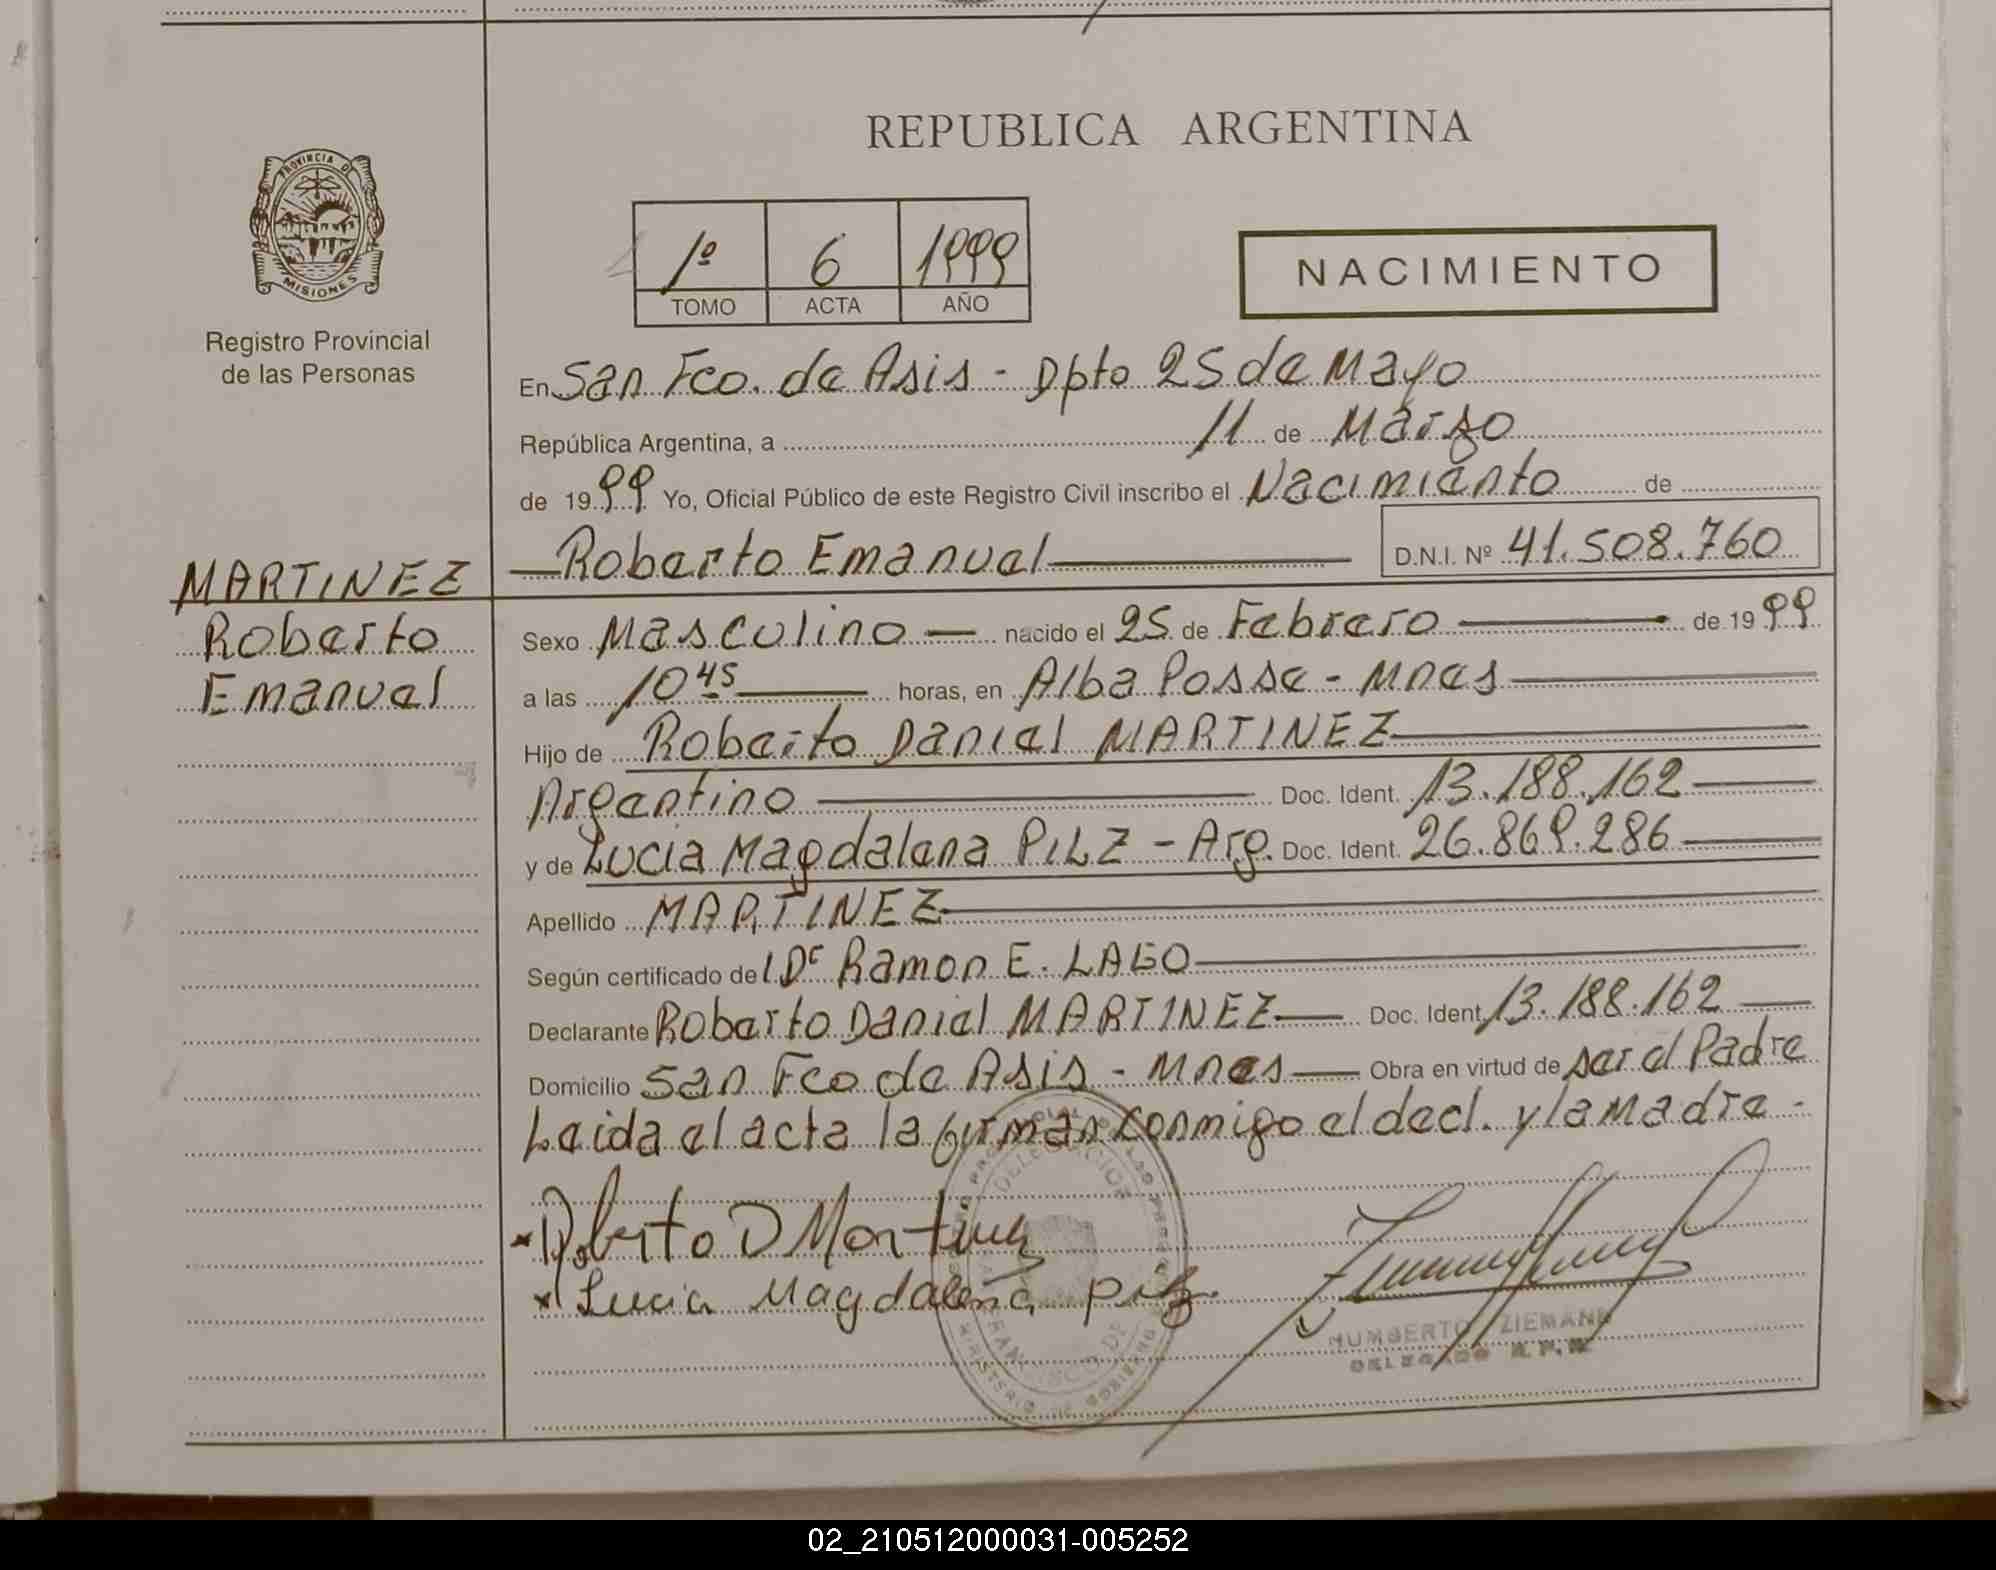 REPUBLICA ARGENTINA
PROVINCIA DE
MISIONES
Registro Provincial
de las Personas
1º 6 1999
TOMO ACTA AÑO
NACIMIENTO
En San Fco. de Asis - Dpto 25 de Mayo
República Argentina, a 11 de Marzo
de 1999 Yo, Oficial Público de este Registro Civil inscribo el Nacimiento de
Roberto Emanuel D.N.I. Nº 41.508.760
MARTINEZ
Roberto
Emanuel
Sexo Masculino nacido el 25 de Febrero de 1999
a las 10 45 horas, en Alba Posse - Mnes
Hijo de Roberto Daniel MARTINEZ
Argentino Doc. Ident. 13.188.162
y de Lucia Magdalena PILZ - Arg. Doc. Ident. 26.869.286
Apellido MARTINEZ
Según certificado del Dr Ramon E. LAGO
Declarante Roberto Daniel MARTINEZ Doc. Ident. 13.188.162
Domicilio San Fco de Asis - Mnes Obra en virtud de ser el Padre
Leida el acta la firman conmigo el decl. y la Madre -
Roberto D Martinez
Lucia Magdalena Pilz
HUMBERTO ZIEMANN
DELEGADO R.P.P.
02_210512000031-005252